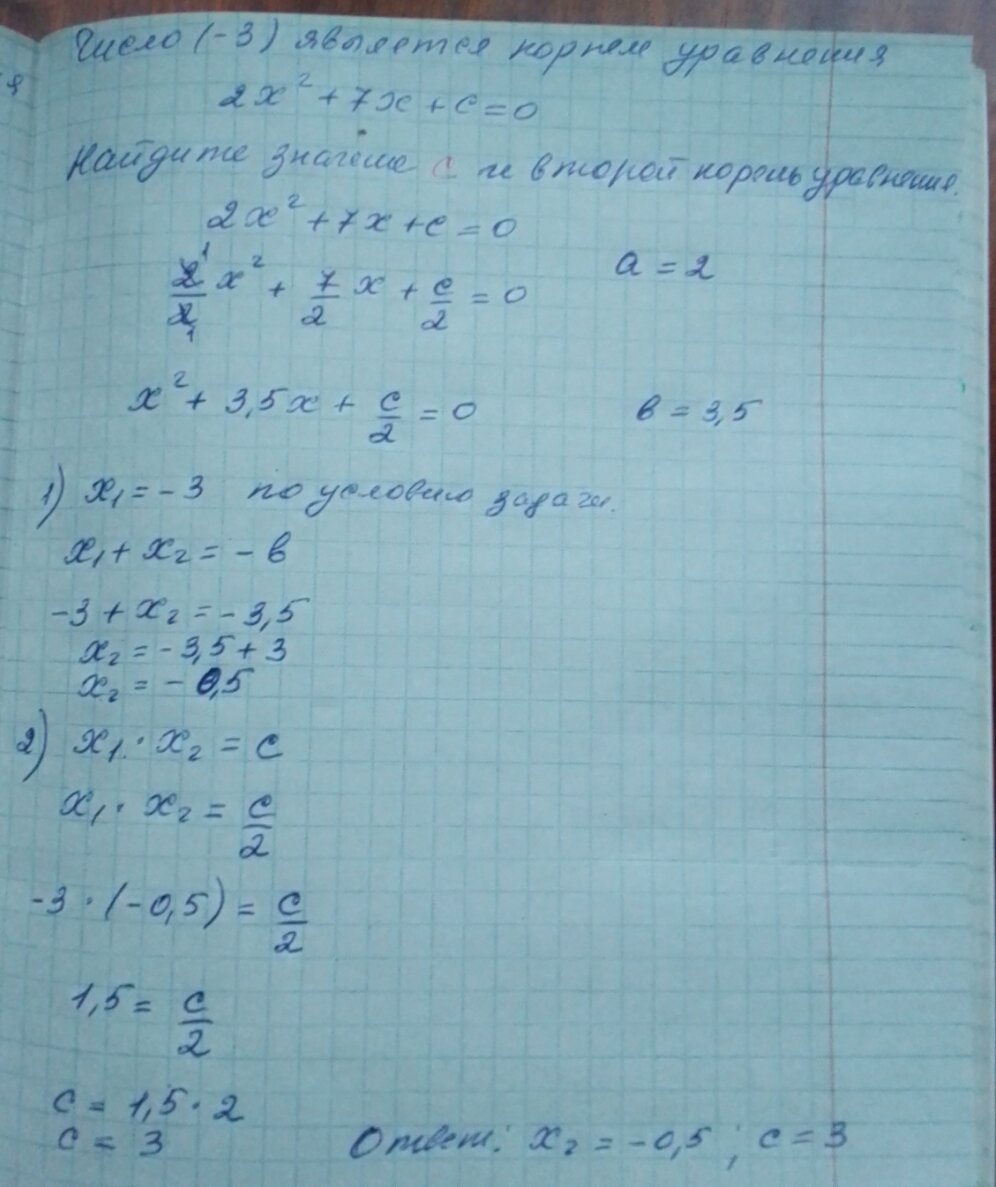 Число (-3) является корнем уравнения
2x² + 7x + c = 0
Найдите значение c и второй корень уравнения.
2x² + 7x + c = 0
2/2 x² + 7/2 x + c/2 = 0 a = 2
x² + 3,5x + c/2 = 0 в = 3,5
1) x₁ = -3 по условию задачи.
x₁ + x₂ = -в
-3 + x₂ = -3,5
x₂ = -3,5 + 3
x₂ = -0,5
2) x₁ · x₂ = c
x₁ · x₂ = c/2
-3 · (-0,5) = c/2
1,5 = c/2
c = 1,5 · 2
c = 3 Ответ: x₂ = -0,5 ; c = 3